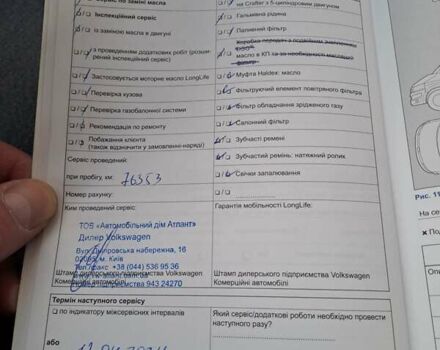 Сервіс по заміні масла
на Crafter з 5-циліндровим двигуном
Інспекційний сервіс
Гальмівна рідина
із заміною масла в двигуні
Паливний фільтр
з проведенням додаткових робіт (розширений Інспекційний сервіс)
масло в КП та за необхідності масляний фільтр
Застосовується моторне масло LongLife
Муфта Haldex: масло
Перевірка кузова
фільтруючий елемент повітряного фільтра
Перевірка газобалонної системи
Фільтр обладнання зрідженого газу
Рекомендація по ремонту
Салонний фільтр
Побажання клієнта
(також відзначити у замовленні-наряді)
Зубчасті ремені
Сервіс проведений:
Зубчастий ремінь: натяжний ролик
при пробігу, км: 76353
Свічки запалювання
Номер рахунку:
Ким проведений сервіс:
Гарантія мобільності LongLife:
ТОВ «Автомобільний дім Атлант»
Дилер Volkswagen
Вул. Дніпровська набережна, 16
м. Київ
Тел/факс +38 (044) 536 95 36
Штамп дилерського підприємства Volkswagen
Комерційні автомобілі
підприємства 943 24270
Штамп дилерського підприємства Volkswagen
Комерційні автомобілі
Термін наступного сервісу
по індикатору міжсервісних інтервалів
Який сервіс/додаткові роботи необхідно провести наступного разу?
або
Рис. 11
На ос